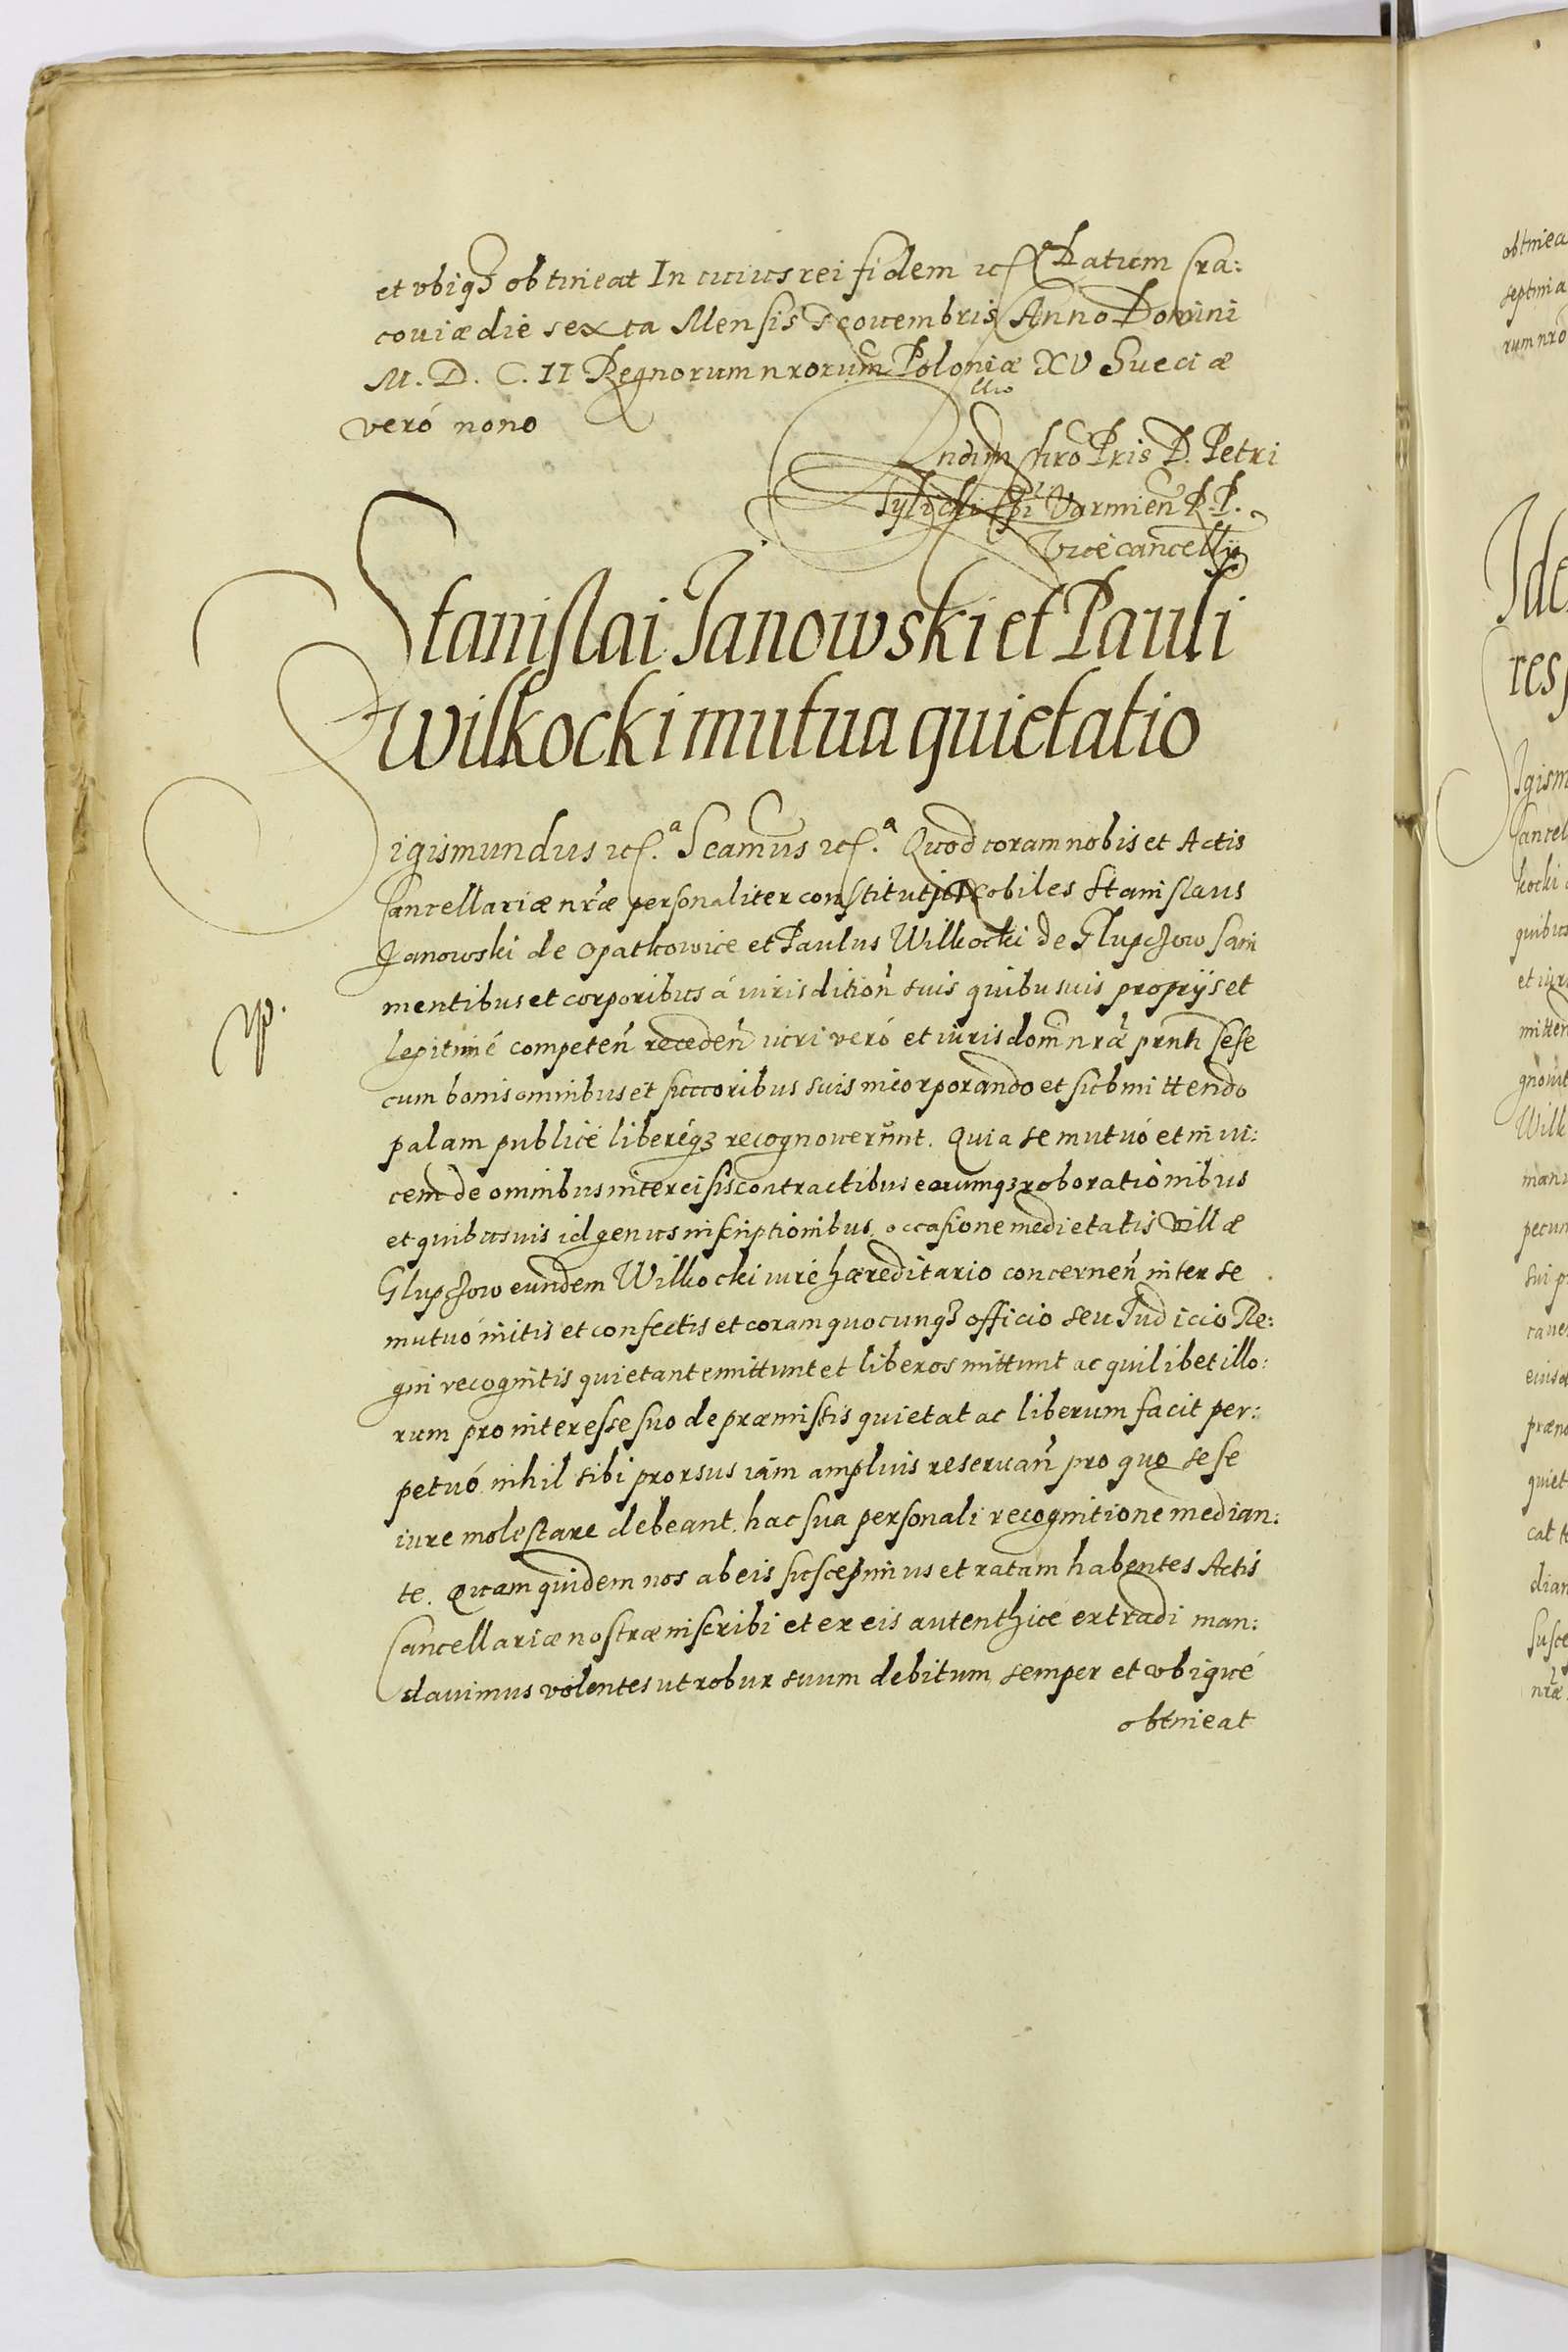 et vbiq3 obtineat In cuius rei fidem etc.ª Datum Cra:
coviæ die sexta Mensis Novembris Anno Domini
M. D. C. II Regnorum nrorum Poloniæ XV Sueciæ
veró nono
Rndm Chro Pris D. Petri
Tylicki Epi Varmien̄ R. P.
Vicecancellij
Stanislai Janowski et Pauli
Wilkocki mutua quietatio
Sigismundus etc.ª Seamus etc.ª Quod coram nobis et Actis
Cancellariæ nræ personaliter constituti Nobiles Stanislaus
Janowski de Opatkowice et Paulus Wilkocki de Glupczow sani
mentibus et corporibus á iurisdition̄ suis quibusuis proprijs et
legitimé competen̄ receden̄ iuri veró et iurisdom̄ nræ prnti sese
cum bonis omnibus et succoribus suis incorporando et submittendo
palam publicé liberéq3 recognouerunt. Quia se mutuó et in vi:
cem de omnibus intercisis contractibus earumq3 roborationibus
et quibusuis id genus inscriptionibus occasione medietatis villæ
Glupczow eundem Wilkocki iuré hæreditario concernen̄ inter se
mutuó initis et confectis et coram quocunq3 officio seu Iudicio Re:
gni recognitis quietant emittunt et liberos mittunt ac quilibet illo:
rum pro interesse suo de præmissis quietat ac liberum facit per:
petuó nihil sibi prorsus iám ampluis reseruan̄ pro quo sese
iure molestare debeant. hac sua personali recognitione median:
te. Quam quidem nos ab eis suscepimus et ratam habentes Actis
Cancellariæ nostræ inscribi et ex eis autenthicé extradi man:
dauimus volentes ut robur suum debitum semper et vbiqué
obtineat